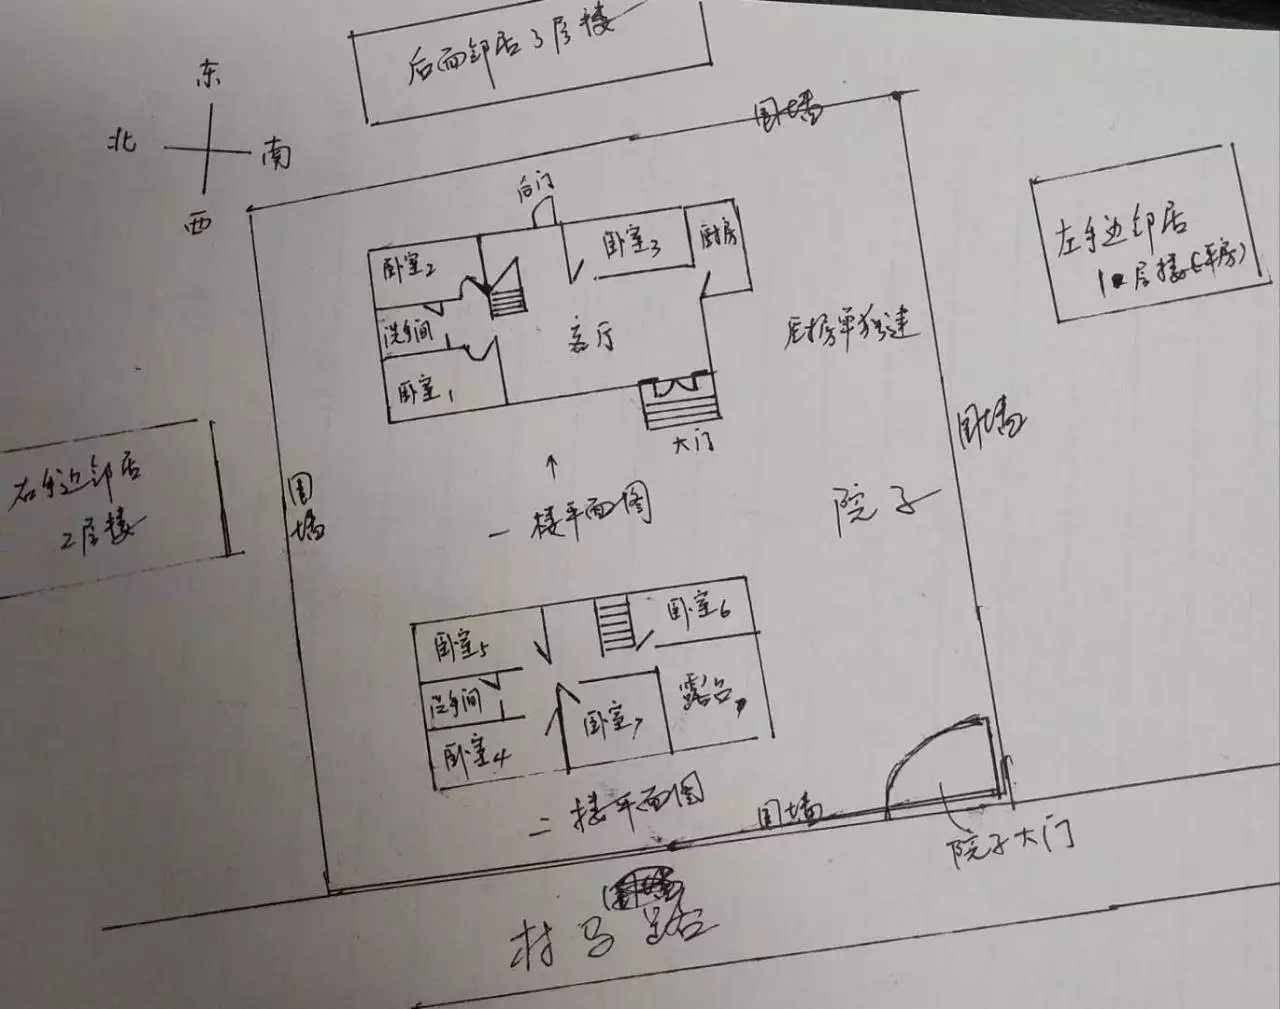 后面邻居3层楼
东
北
南
西
围墙
后门
卧室2
卧室3
厨房
左手边邻居
1层楼(平房)
洗手间
客厅
厨房单独建
卧室1
大门
围墙
右手边邻居
2层楼
围
墙
一楼平面图
院子
卧室5
卧室6
洗手间
卧室7
露台
卧室4
二楼平面图
围墙
院子大门
村马路